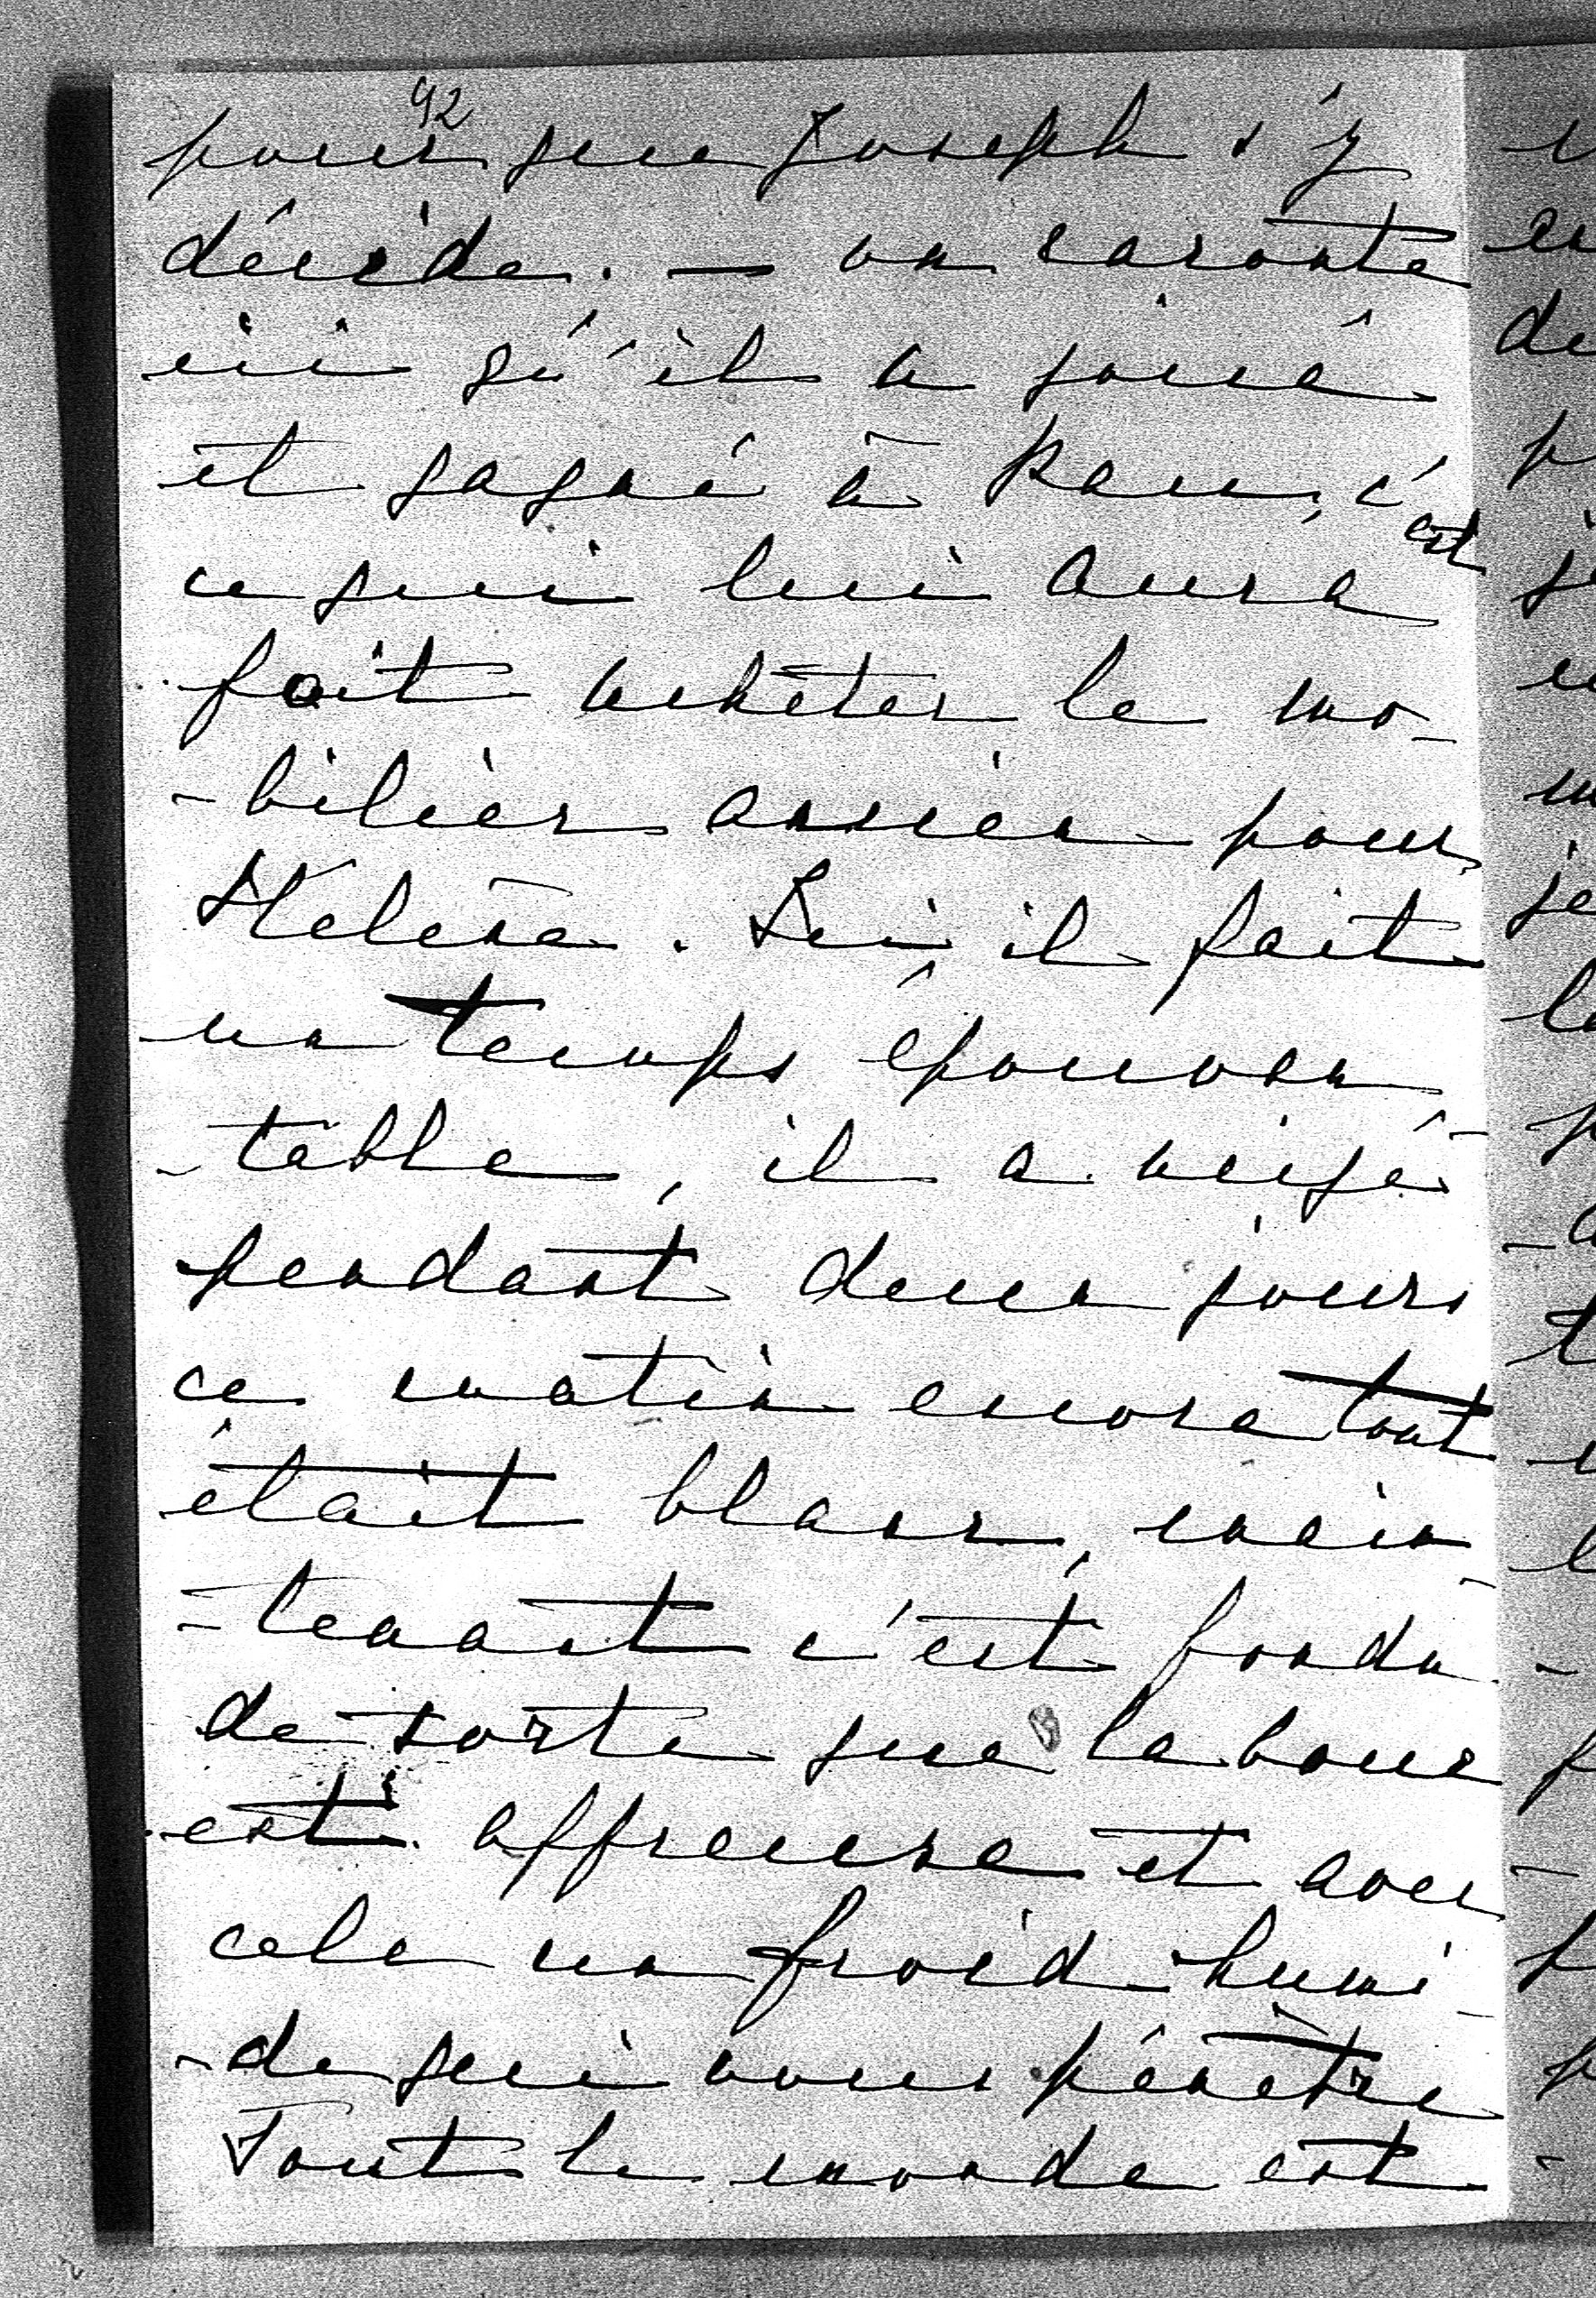 92
pour que Joseph s'y
décide. — on raconte
ici qu'il a joué
et gagné à Pau, c'est
ce qui lui aura
fait acheter le mo-
-bilier ancien pour
Hélène. Ici, il fait
un temps épouvan
-table, il a neigé
pendant deux jours
ce matin encore tout
était blanc, main-
-tenant c'est fondu
de sorte que la boue
est affreuse et avec
cela un froid humi-
-de qui vous pénètre
Tout le monde est